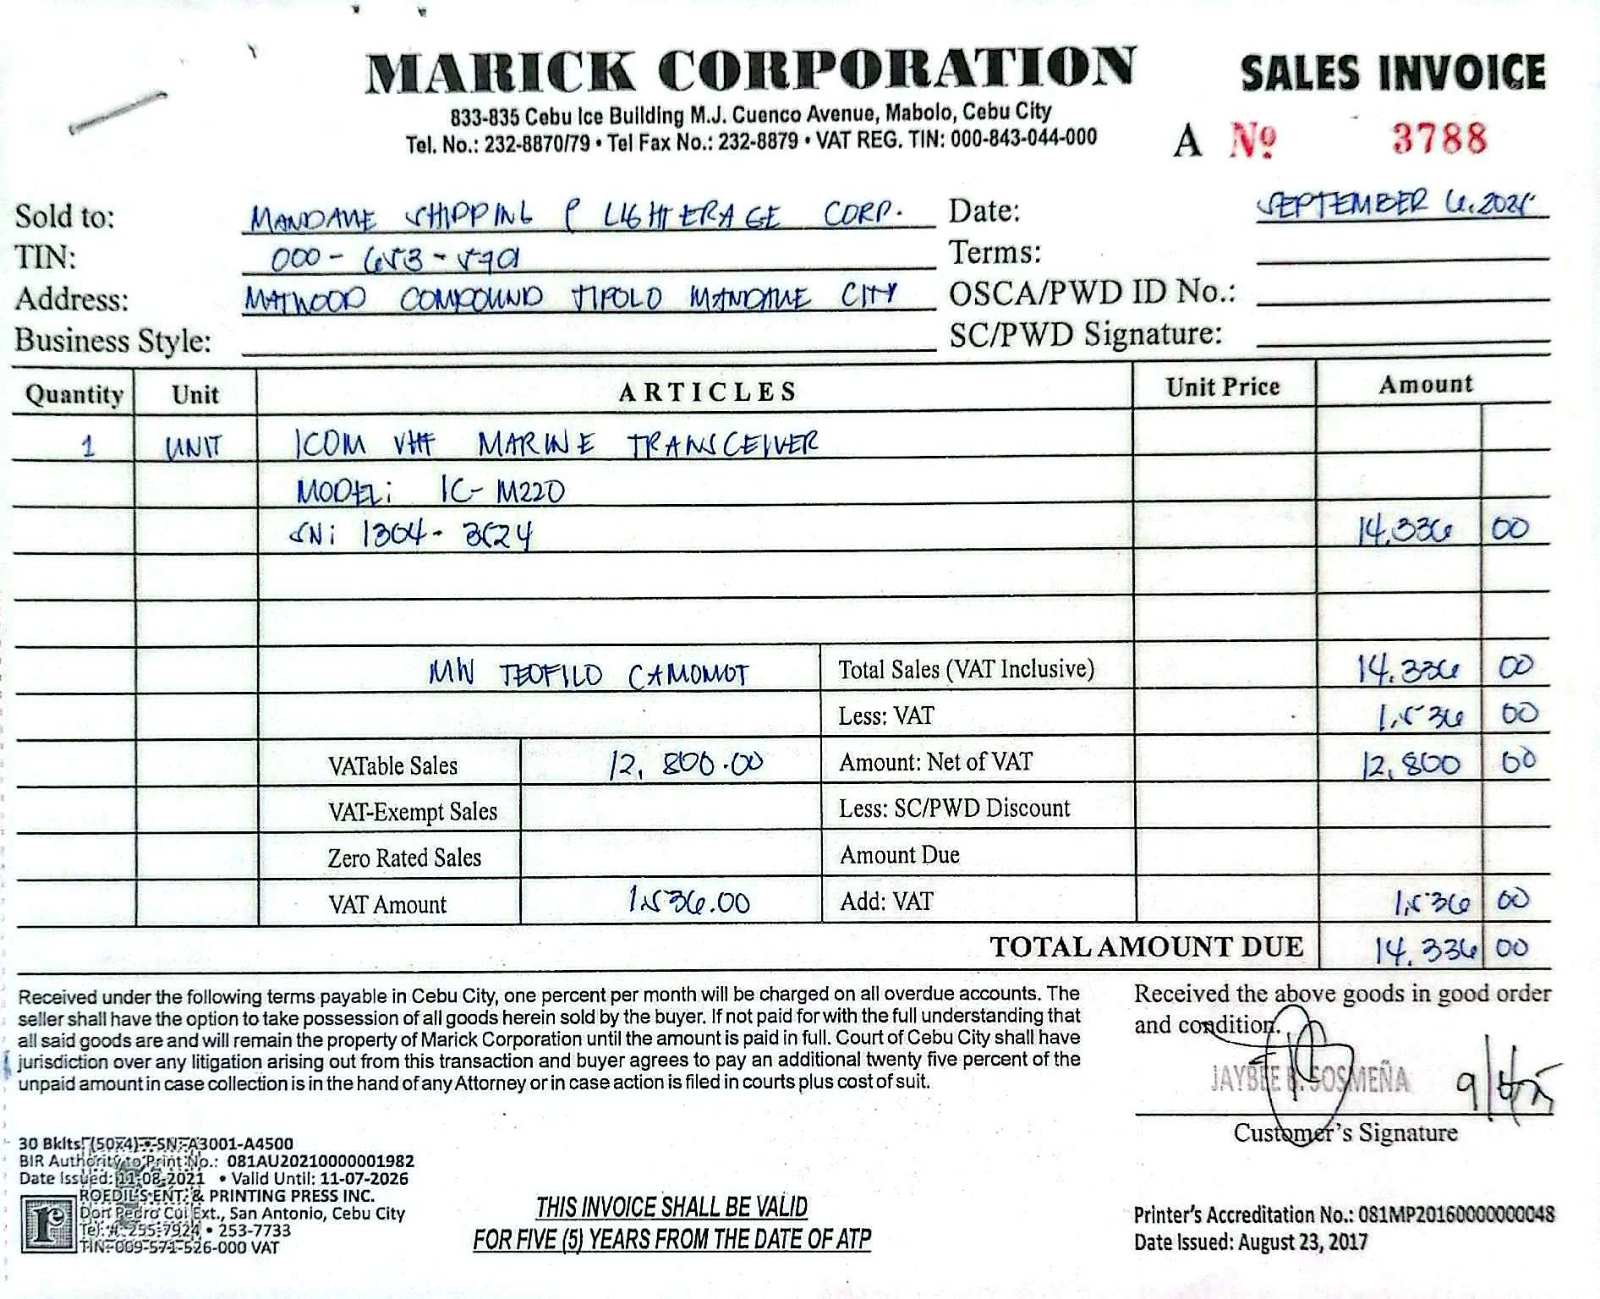 MARICK CORPORATION
SALES INVOICE
833-835 Cebu Ice Building M.J. Cuenco Avenue, Mabolo, Cebu City
Tel. No.: 232-8870/79 • Tel Fax No.: 232-8879 • VAT REG. TIN: 000-843-044-000
A Nº 3788
Sold to: MANDAUE SHIPPING & LIGHTERAGE CORP. Date: SEPTEMBER
TIN: 000-653-590 Terms:
Address: MATWOOD COMPOUND TIPOLO MANDAUE CITY OSCA/PWD ID No.:
Business Style: SC/PWD Signature:
Quantity Unit ARTICLES Unit Price Amount
1 UNIT ICOM VHF MARINE TRANSCEIVER
MODEL: IC-M220
SN: 1304-3524 14,336 00
MW TEOFILO CAMOMOT Total Sales (VAT Inclusive) 14,336 00
Less: VAT 1,536 00
VATable Sales 12,800.00 Amount: Net of VAT 12,800 00
VAT-Exempt Sales Less: SC/PWD Discount
Zero Rated Sales Amount Due
VAT Amount 1,536.00 Add: VAT 1,536 00
TOTAL AMOUNT DUE 14,336 00
Received under the following terms payable in Cebu City, one percent per month will be charged on all overdue accounts. The
seller shall have the option to take possession of all goods herein sold by the buyer. If not paid for with the full understanding that
all said goods are and will remain the property of Marick Corporation until the amount is paid in full. Court of Cebu City shall have
jurisdiction over any litigation arising out from this transaction and buyer agrees to pay an additional twenty five percent of the
unpaid amount in case collection is in the hand of any Attorney or in case action is filed in courts plus cost of suit.
Received the above goods in good order
and condition.
JAYBEE B. SOSMEÑA
Customer's Signature
30 Bklts. (50x4) • SN: A3001-A4500
BIR Authority to Print No.: 081AU20210000001982
Date Issued: 11-08-2021 • Valid Until: 11-07-2026
ROEDIL'S ENT. & PRINTING PRESS INC.
Don Pedro Cui Ext., San Antonio, Cebu City
Tel. #: 255-7924 • 253-7733
TIN: 009-571-526-000 VAT
THIS INVOICE SHALL BE VALID
FOR FIVE (5) YEARS FROM THE DATE OF ATP
Printer's Accreditation No.: 081MP20160000000048
Date Issued: August 23, 2017